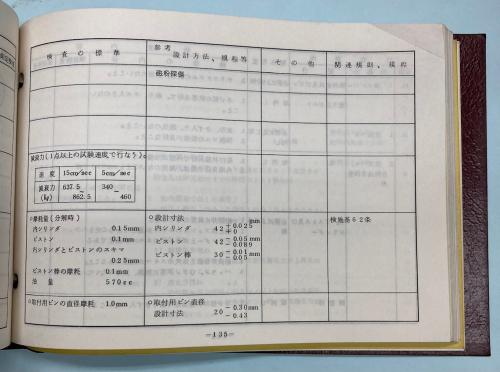 検査の標準
参考
設計方法、規程等
その他
関連規則、規程
磁粉探傷
減衰力(1点以上の試験速度で行なう)。
速度 15cm/sec 5cm/sec
減衰力 637.5 340
(kg) ~ ~
862.5 460
○摩耗量(分解時)
内シリンダ 0.15mm
ピストン 0.1mm
内シリンダとピストンのスキマ
0.25mm
ピストン棒の摩耗 0.1mm
油量 570cc
○設計寸法 mm
内シリンダ 42 +0.025 +0
ピストン 42 -0.05mm -0.089
ピストン棒 30 -0.01mm -0.05
検施基62条
○取付用ピンの直径摩耗 1.0mm
○取付用ピン直径
設計寸法 20 -0.30mm -0.43
-135-